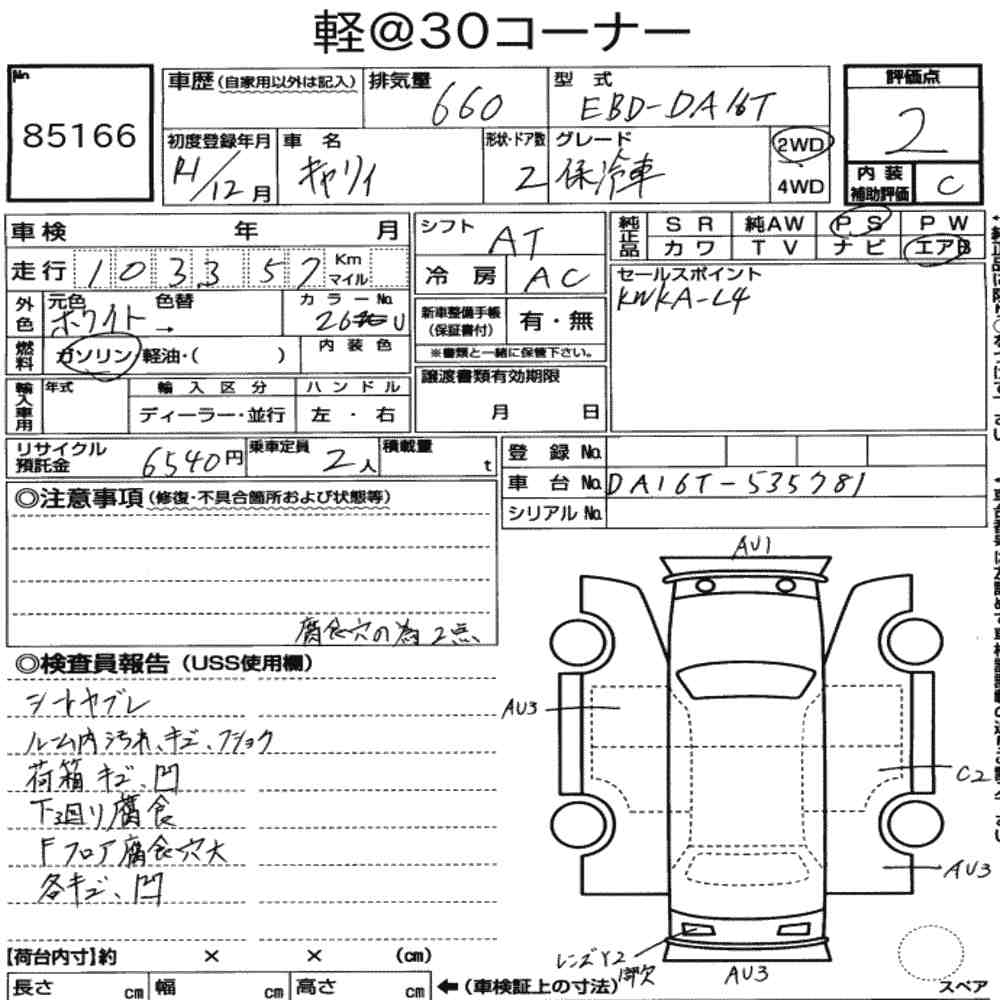 軽@30コーナー
No.
85166
車歴(自家用以外は記入)
排気量 660
型式 EBD-DA16T
評価点
2
初度登録年月 R1/12月
車名 キャリィ
形状・ドア数 2
グレード 保冷車
2WD
4WD
内装
補助評価 C
車検 年 月
シフト AT
純正品
SR 純AW PS PW
カワ TV ナビ エアB
走行 103357 Km マイル
冷房 AC
セールスポイント
KWKA-L4
外色
元色 ホワイト → 色替
カラーNo. 26 U
新車整備手帳
(保証書付) 有・無
燃料 ガソリン・軽油・( )
内装色
※書類と一緒に保管下さい。
輸入車用
年式
輸入区分
ディーラー・並行
ハンドル
左・右
譲渡書類有効期限
月 日
リサイクル
預託金 6540円
乗車定員 2人
積載量 t
登録No.
車台No. DA16T-535781
シリアルNo.
◎注意事項(修復・不具合箇所および状態等)
腐食穴の為2点
◎検査員報告(USS使用欄)
シートヤブレ
ルーム内汚れ、キズ、フショク
荷箱キズ、凹
下回り腐食
Fフロア腐食穴大
各キズ、凹
AU1
AU3
C2
AU3
レンズY2
部欠
AU3
スペア
【荷台内寸】約 × × (cm)
長さ cm 幅 cm 高さ cm ←(車検証上の寸法)